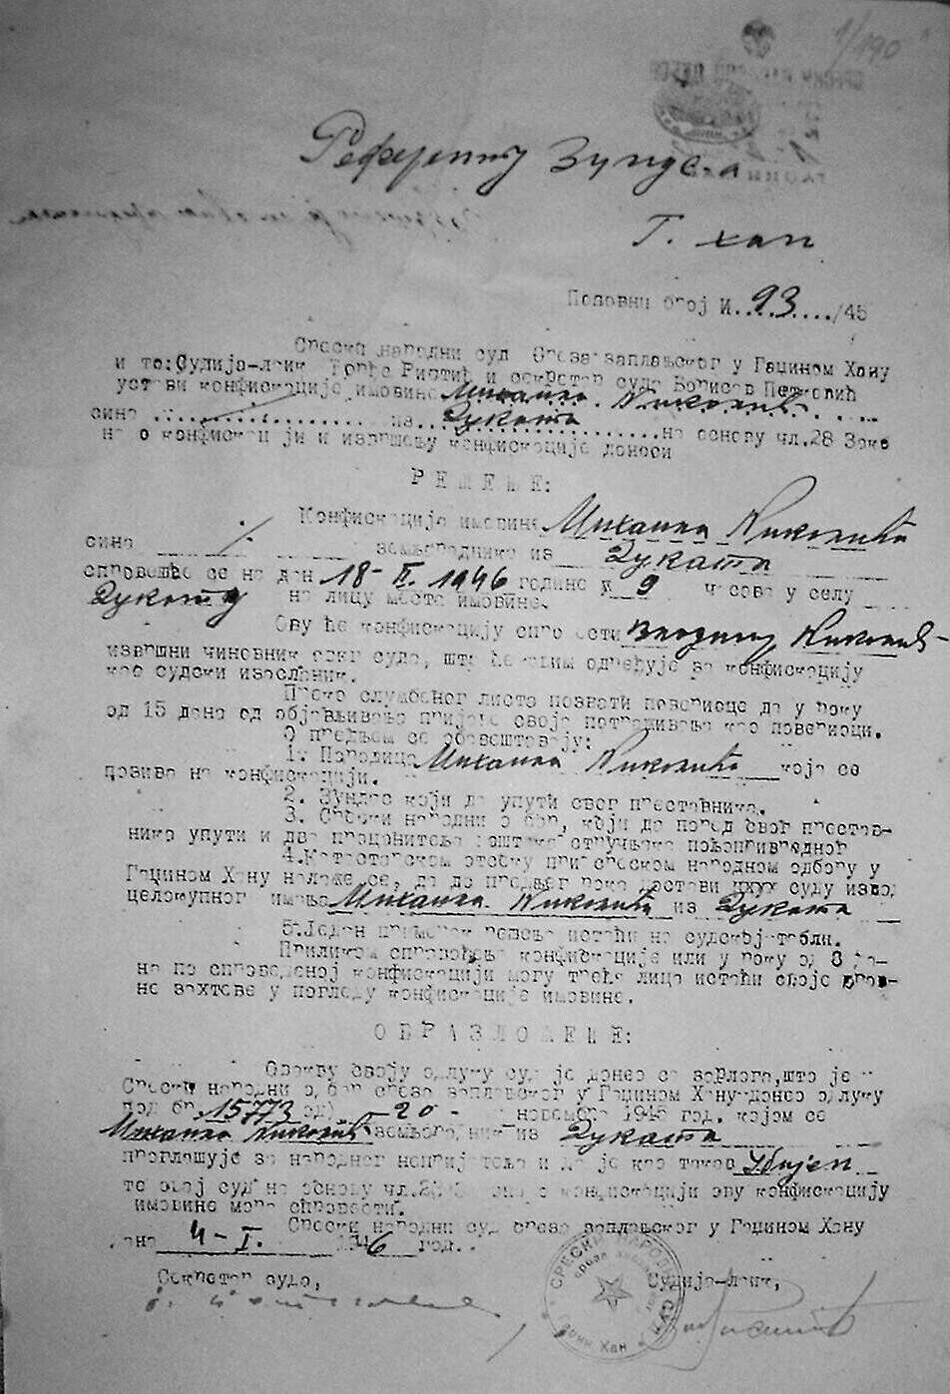 1/190
Референту Зундс-а
Г. Хан
Пословни број И. 93 /45
Срески народни суд Среза заплањског у Гаџином Хану
и то: Судија-лаик Ђорђе Ристић и секретар суда Борисав Петковић
у ствари конфискације имовине Михаила Николића
сина из Дуката на основу чл.28 Зако
на о конфискацији и извршењу конфискације доноси
РЕШЕЊЕ:
Конфискација имовине Михаила Николића
сина ./. земљорадника из Дуката
спровешће се на дан 18-II. 1946 године у 9 часова у селу
Дукату на лицу места имовине.
Ову ће конфискацију спровести Николић
извршни чиновник овог суда, што ће се њим одређује за конфискацију
као судски изасланик.
Преко службеног листа позвати повериоце да у року
од 15 дана од објављивања пријаве своја потраживања као повериоци.
О предњем се обавештавају:
1. Породица Михаила Николића која се
позива на конфискацији.
2. Зундас који да упути свог преставника.
3. Срески народни одбор, који да поред свог престав-
ника упути и два проценитеља вештака стручњака пољопривредног
4. Катастарском отсеку при среском народном одбору у
Гаџином Хану налаже се, да до предњег рока достави суду извод
целокупног имања Михаила Николића из Дуката
5. Један примерак решења истаћи на судској табли.
Приликом спровођења конфискације или у року од 8 да-
на по спроведеној конфискацији могу трећа лица истаћи своје прав-
не захтеве у погледу конфискације имовине.
ОБРАЗЛОЖЕЊЕ:
Овакву своју одлуку суд је донео са разлога, што је
Срески народни одбор среза заплањског у Гаџином Хану донео одлуку
под бр. 15773 од 20 - новембра 1945 год. којом се
Михаило Николић земљорадник из Дуката
проглашује за народног непријатеља и да је као такав Убијен
то овај суд на основу чл.28 Закона о конфискацији ову конфискацију
имовине мора спровести.
Срески народни суд среза заплањског у Гаџином Хану
дана 4-I. 1946 год.
Секретар суда, Судија-лаик,
СРЕСКИ НАРОДНИ СУД
Хан